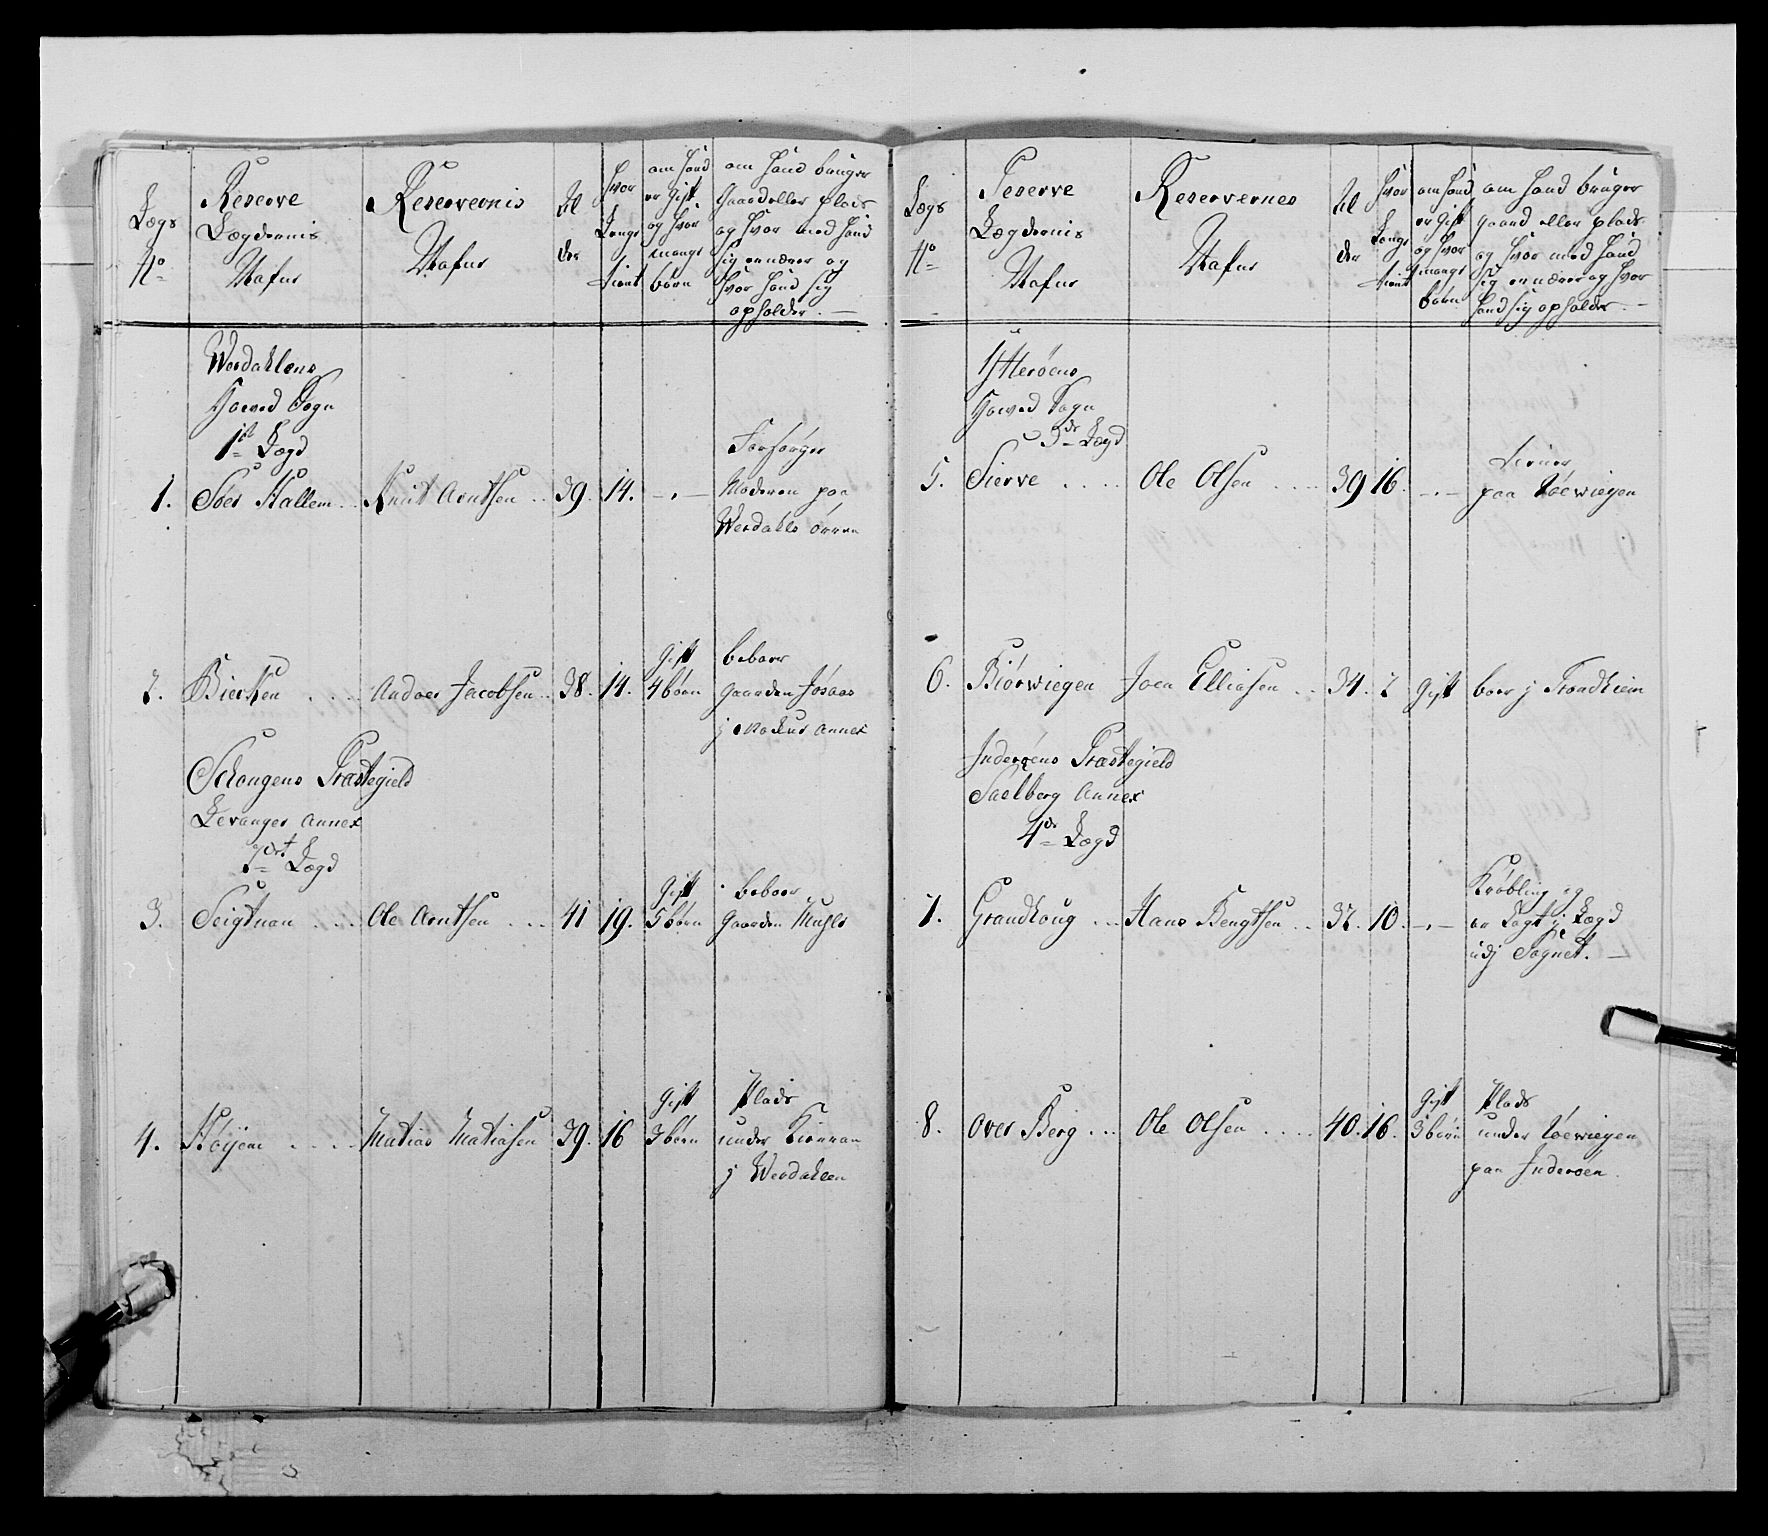 Lægs
No
Reserve
Lægdernis
Nafne
Reservernis
Nafne
Al
der
Hvor
Længe
tient
om Hand
er Gift
og Hvor
mange
børn
om Hand bruger
Gaard eller plads
og Hvor med Hand
sig ernærer og
Hvor Hand sig
opholder. —
Werdahlens
Hoved Sogn
1st Lægd
1. Soer Hallem .. Knut Arntsen .. 39. 14. —,—
Forsørger
Moderen paa
Werdahls øeren
2. Biertken .... Andres Jacobsen .. 38. 14.
Gift
4 børn
beboer
gaarden
j annex
Schongens Præstegield
Levanger Annex
Lægd
3. Seigtnan .... Ole Arntsen .... 41 19.
Gift
5 børn
beboer
gaarden
4. Høyem .... Matias Matiasen 39. 16
Gift
3 børn
Plads
under
j Werdahlen
Lægs
No
Reserve
Lægdernis
Nafne
Reservernes
Nafne
Al
der
Hvor
Længe
tient
om Hand
er Gift
og Hvor
mange
børn
om Hand bruger
gaard eller plads
og Hvor med Hand
sig ernærer og Hvor
Hand sig opholder. —
Ytterøens
Hoved Sogn
3de Lægd
5. Sierve .... Ole Olsen .... 39 16. —,—
tiener
paa Røewiegen
6. Biørwiegen Joen Elliasen .. 34. 7 Gift boer j Trondhiem
Inderøens Præstegield
Saelberg Annex
4de Lægd
7. Grandhoug ... Hans Bengtsen .. 37. 10. —,—
Krøbling og
er Lagt j Lægd
udj Sognet. —
8. Over Berg ... Ole Olsen .... 40. 16.
Gift
3 børn
Plads
under Røewiegen
paa Inderøen.